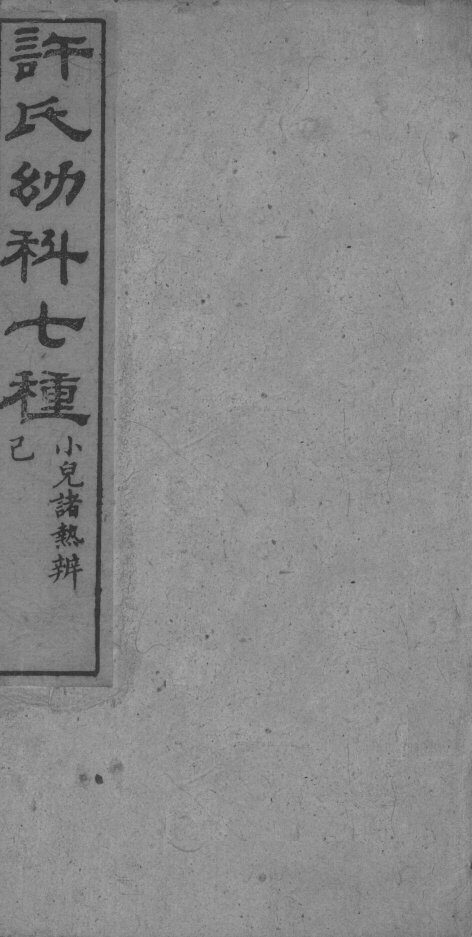 許氏幼科七種
小兒諸熱辨
己